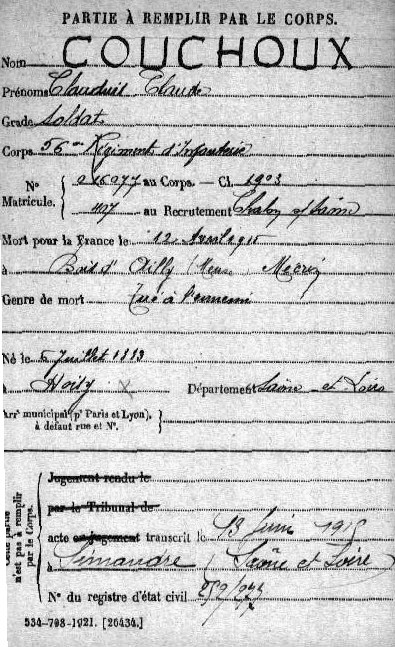 PARTIE À REMPLIR PAR LE CORPS.
Nom COUCHOUX
Prénoms Claudius Claude
Grade Soldat
Corps 56me Régiment d'Infanterie
N° Matricule. 016077 au Corps. — Cl. 1903
1117 au Recrutement Chalon s/Saône
Mort pour la France le 12 Avril 1915
à Bois d'Ailly (Meuse)
Genre de mort Tué à l'ennemi
Né le 5 Juillet 1883
à Département Saône et Loire
Arrt municipal (pr Paris et Lyon), à défaut rue et N°.
Cette partie n'est pas à remplir par le Corps.
Jugement rendu le
par le Tribunal de
acte ou jugement transcrit le 13 Juin 1915
à Simandre (Saône et Loire)
N° du registre d'état civil
534-708-1921. [26434.]